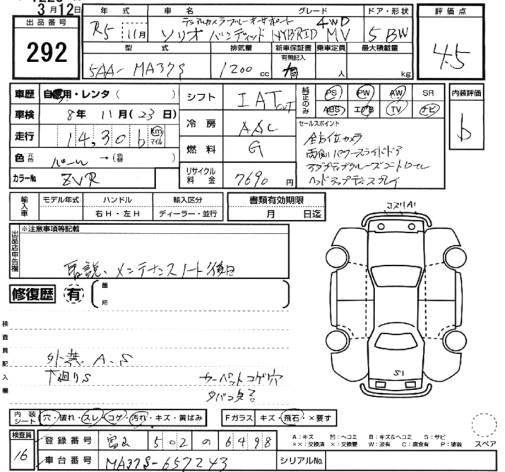 3月12日
出品番号
292
年式 車名 グレード ドア・形状
R5 11月 ソリオ バンディット HYBRID MV 4WD 5 BW
評価点
4.5
型式 排気量 新車保証書 乗車定員 最大積載量
有無記入
5AA-MA37S 1200cc 有 人 kg
車歴 自家用・レンタ( )
車検 8年 11月(23日)
走行 14,306 km マイル
色 パール →( )
カラーNo. ZVR
シフト IAT
冷房 AAC
燃料 G
リサイクル料金 7690 円
純正のみ PS PW AW SR
ABS エアB TV ナビ
セールスポイント
全方位カメラ
両側パワースライドドア
アダプティブクルーズコントロール
ヘッドアップディスプレイ
内装評価
b
輸入車 モデル年式 ハンドル 輸入区分
右H・左H ディーラー・並行
書類有効期限
月 日迄
出品店申告欄
※注意事項等記載
取説、メンテナンスノート後日
修復歴 有 箇所
コスリA1
S1
検査員記入欄
外装 A.S
下廻りS
カーペットコゲ穴
タバコ臭
内装シート 穴・破れ・スレ・コゲ・汚れ・キズ・黄ばみ
Fガラス キズ・飛石・×要す
検査員
16
登録番号 502 の 6498
車台番号 MA37S-657243
シリアルNo.
A:キズ U:ヘコミ B:キズ&ヘコミ S:サビ
X:要交換 XX:交換済 W:波有 C:腐食有 P:塗装
スペア